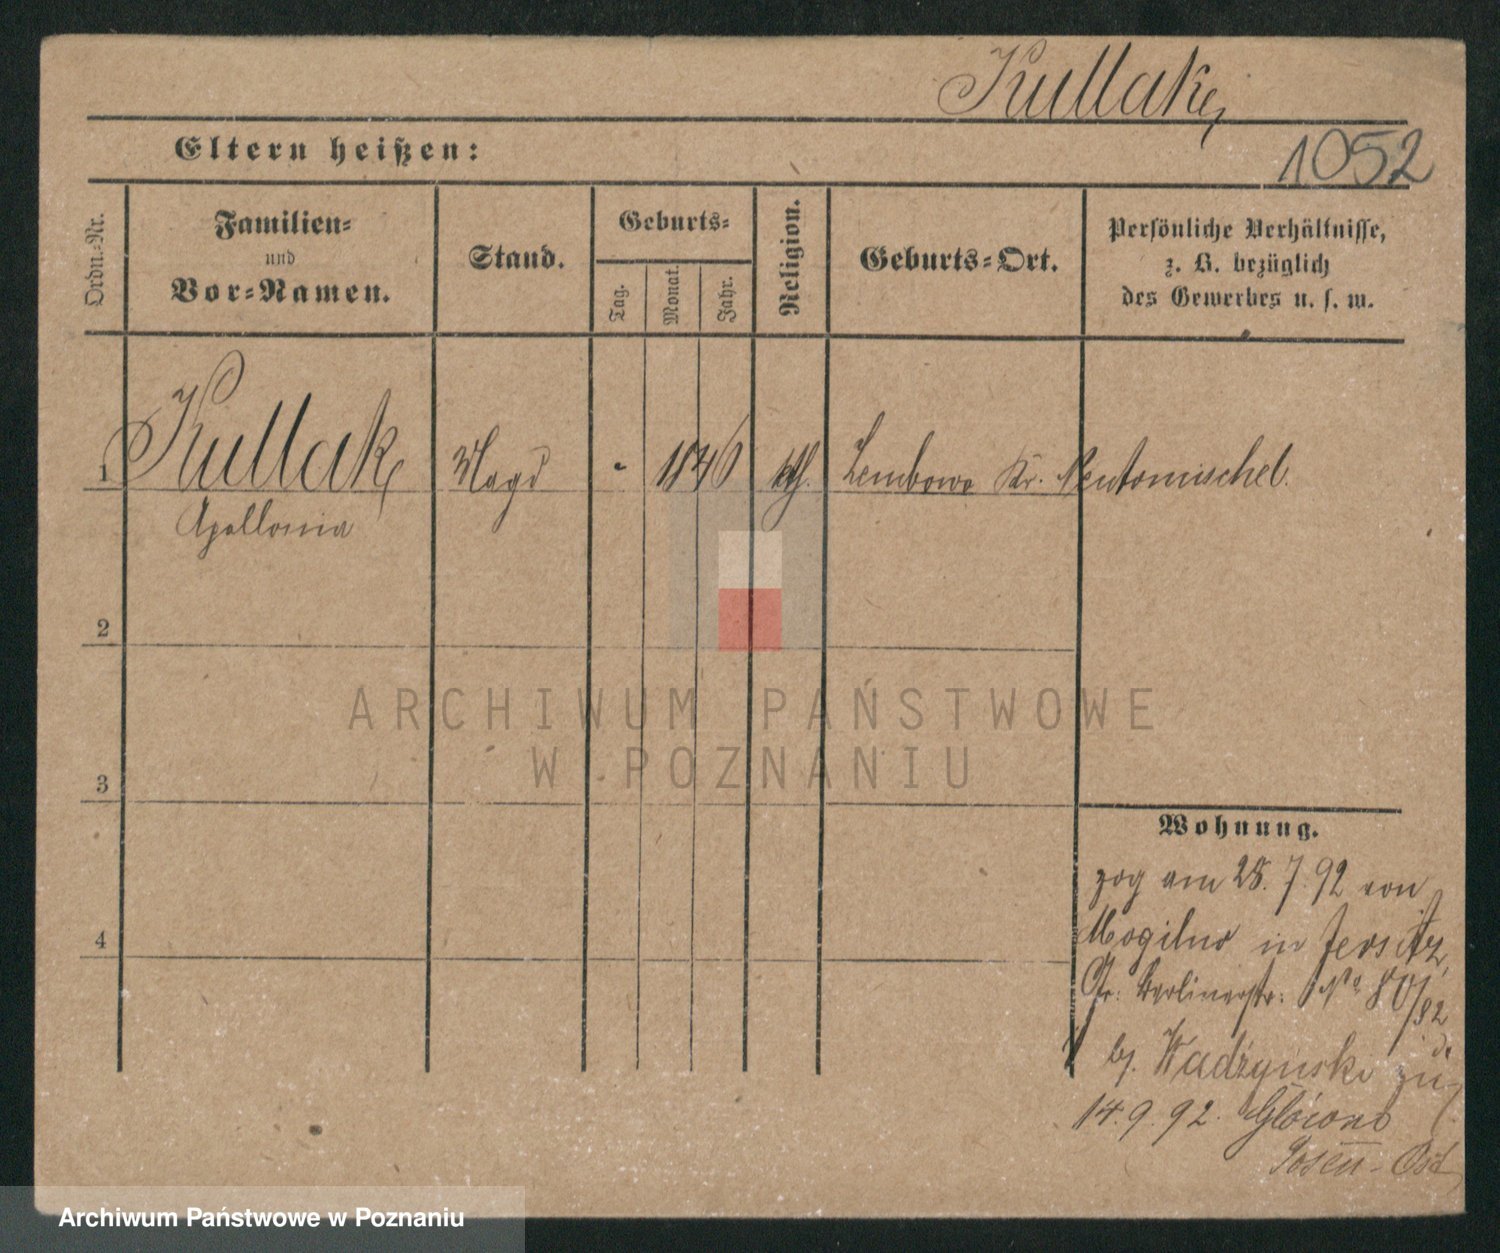 Kullak,
1052
Eltern heißen:
Ordn.-Nr.
Familien-
und
Vor-Namen.
Stand.
Geburts-
Tag.
Monat.
Jahr.
Religion.
Geburts-Ort.
Persönliche Verhältnisse,
z. B. bezüglich
des Gewerbes u. s. w.
1 Kullak, Magd - 1846 kth. Lembowo Kr. Neutomischel.
Apollonia
2
3
4
Wohnung.
zog am 28. 7. 92 von
Mogilno in Jersitz,
Berlinerstr: No 80/82
bj. Wadzynski zu
14.9.92. Glowno
Posen-Ost
ARCHIWUM PAŃSTWOWE
W POZNANIU
Archiwum Państwowe w Poznaniu